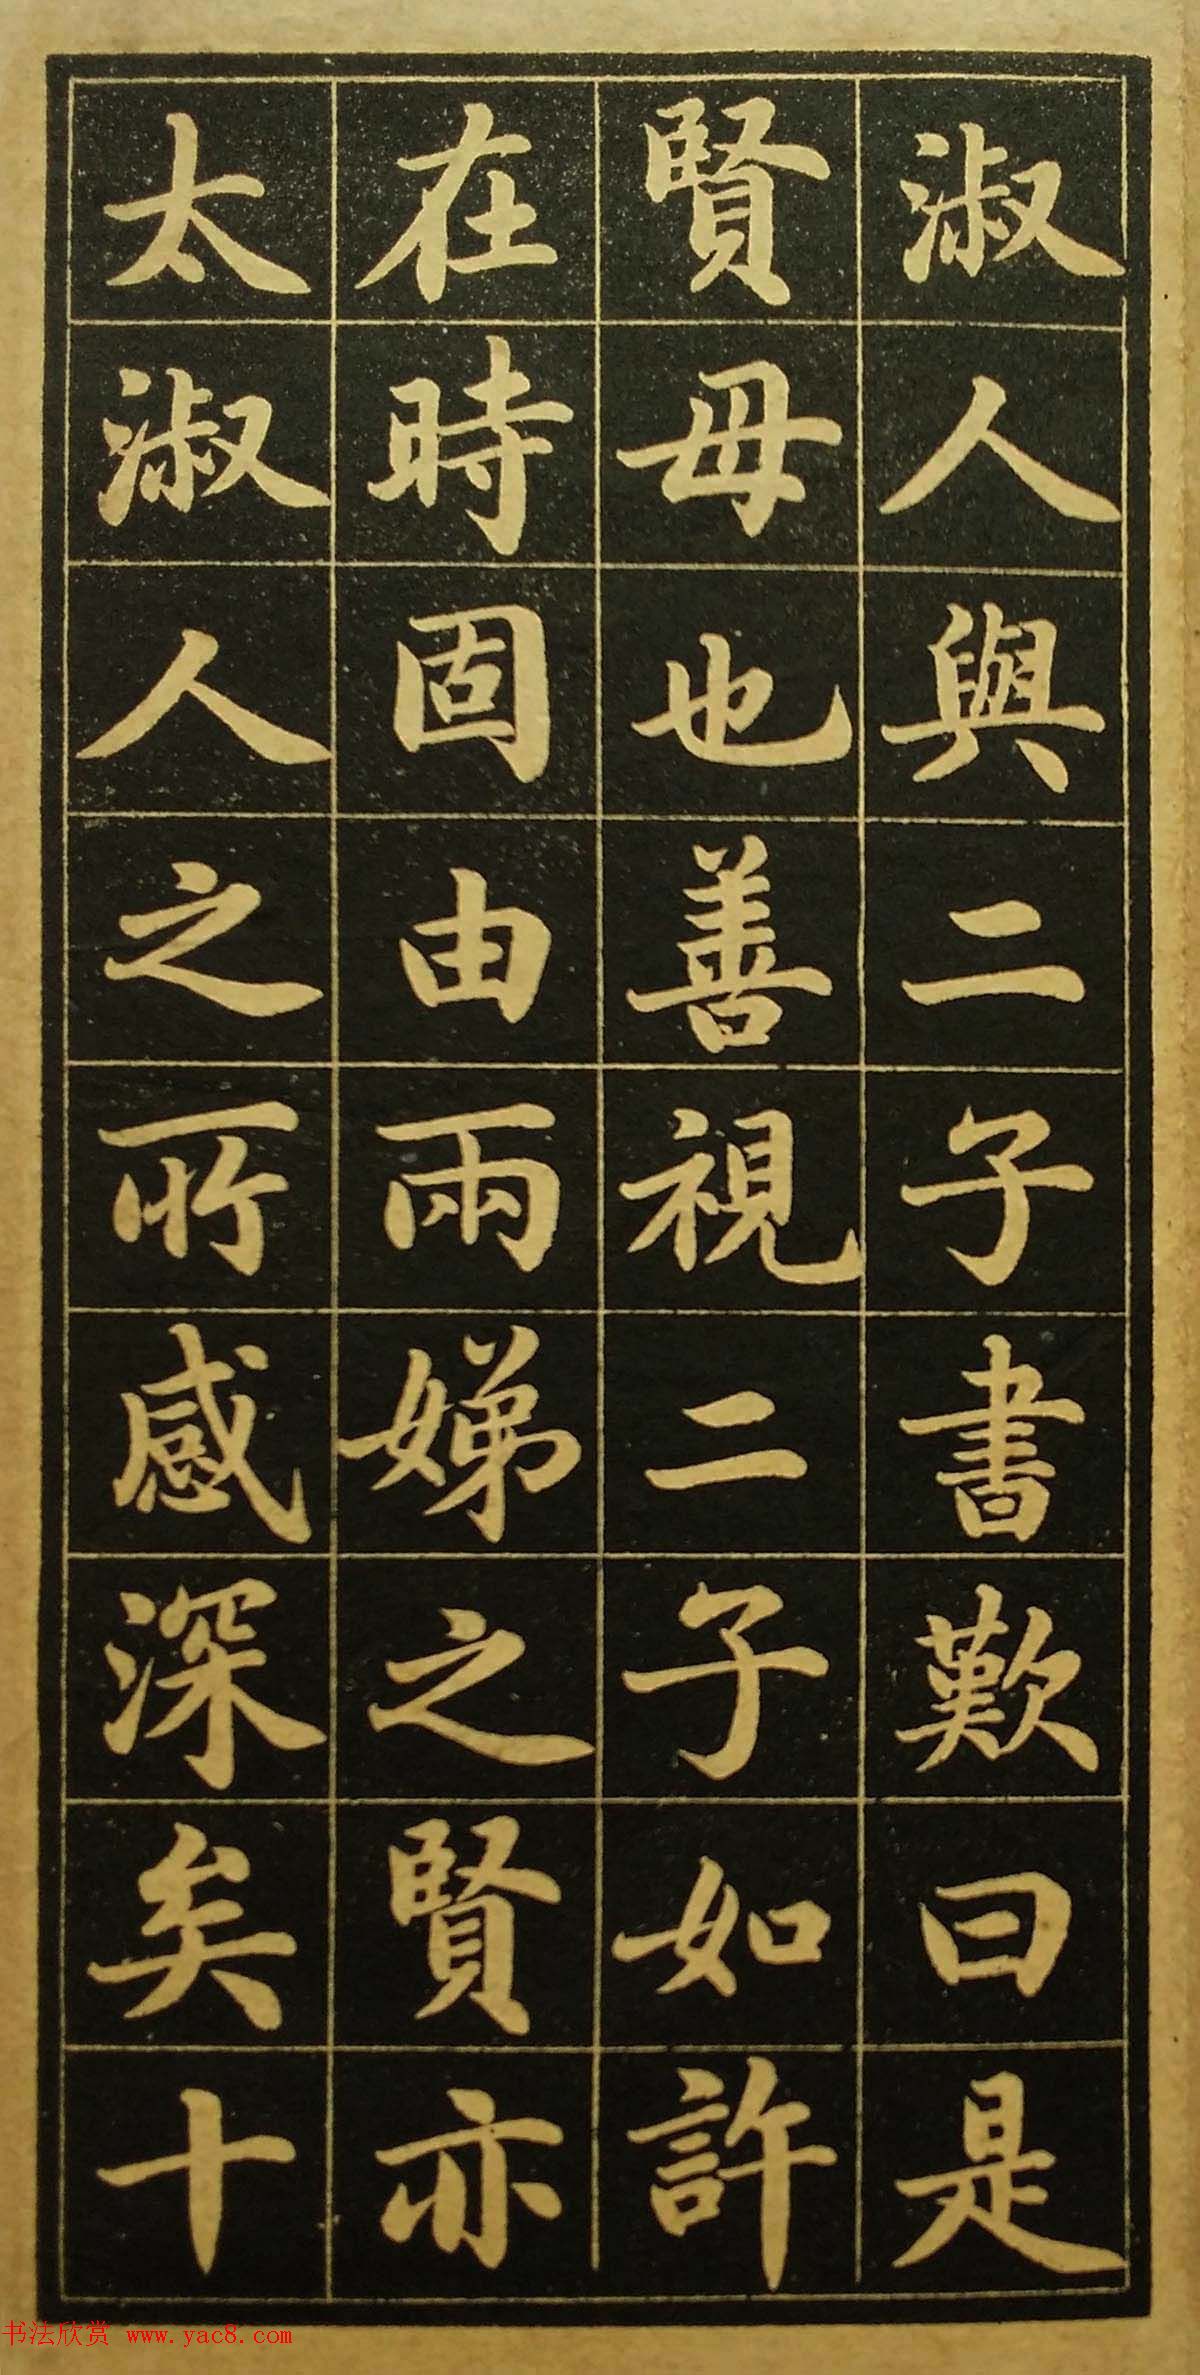 淑人與二子書歎曰是
賢母也善視二子如許
在時固由兩娣之賢亦
太淑人之所感深矣十
书法欣赏 www.yac8.com